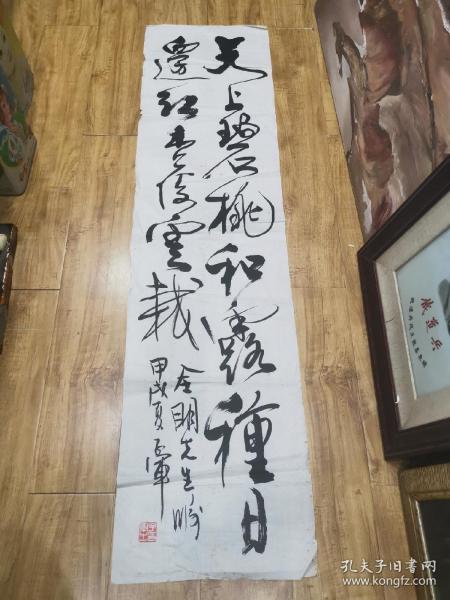 天上碧桃和露種日
邊紅杏倚雲栽
金明先生嘱
甲戌夏
孔夫子旧书网
www.kongfz.com